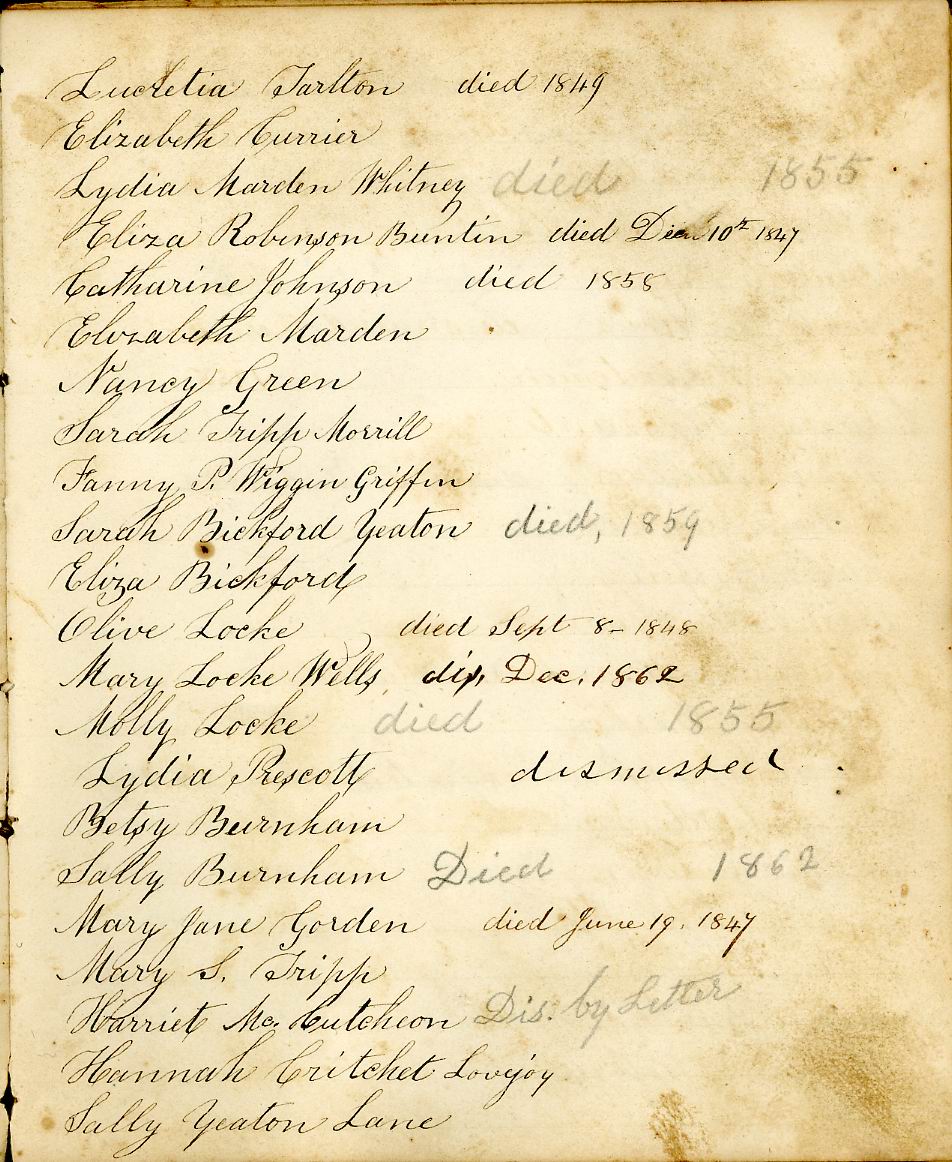 Lucretia Tarlton died 1849
Elizabeth Currier
Lydia Marden Whitney died 1855
Eliza Robinson Buntin died Dec 10th 1847
Catharine Johnson died 1858
Elizabeth Marden
Nancy Green
Sarah Tripp Morrill
Fanny P. Wiggin Griffin
Sarah Bickford Yeaton died, 1859
Eliza Bickford
Olive Locke died Sept 8- 1848
Mary Locke Wells dis, Dec. 1862
Molly Locke died 1855
Lydia Prescott dismissed
Betsy Burnham
Sally Burnham Died 1862
Mary Jane Gorden died June 19. 1847
Mary S. Tripp
Harriet Mc. Cutcheon Dis. by Letter
Hannah Critchet Lovejoy
Sally Yeaton Lane